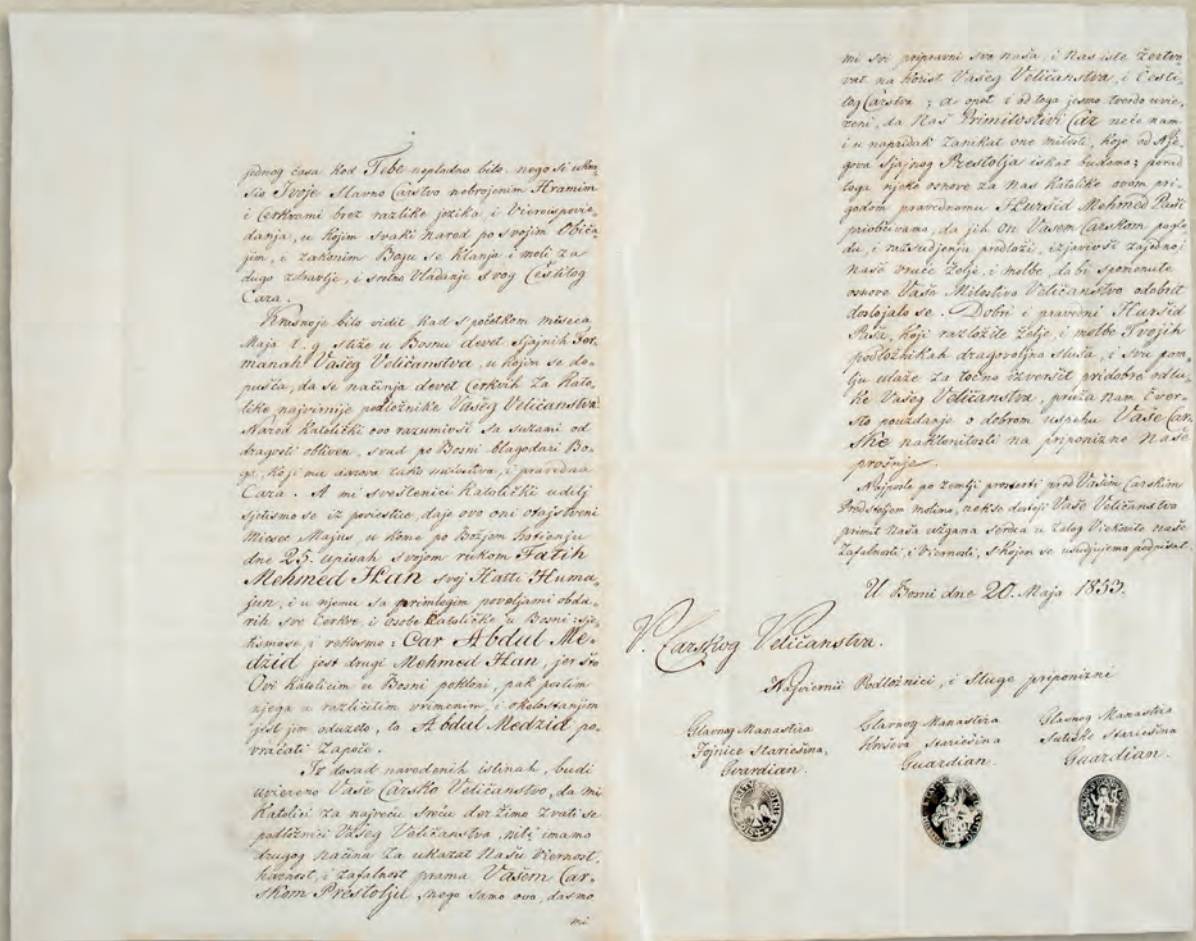 jednog časa kod Tebe neplodno bilo, nego si ukra-
sio Tvoje slavno Carstvo nebrojenim Hramim
i Cerkvami brez razlike jezika, i Vieroispovie-
danja, u kojim svaki narod po svojim Običa-
jim, i zakonim Bogu se klanja i moli za
dugo zdravlje, i sretno vladanje svog Čestitog
Cara.
Krasnoje bilo vidit, kad s početkom miseca
Maja t. g. stiže u Bosnu devet sjajnih Fer-
manah Vašeg Veličanstva, u kojim se do-
pušća, da se načinja devet Cerkvih za Kato-
like najvirnije podložnike Vašeg Veličanstva.
Narod Katolički ovo razumivši sa suzami od
dragosti obliven, svud po Bosni blagodari Bo-
ga, koji mu darova tako milostiva, i pravedna
Cara. A mi sveštenici Katolički udilj
sjetismo se iz poviestice, daje ovo oni otajstveni
Miesec Majus, u kome po Božjem hotienju
dne 25. upisah svojom rukom Fatih
Mehmed Han svoj Hatti Huma-
jun, i u njemu sa primlogim povoljami obda-
rih sve Cerkve, i osobe Katoličke u Bosni: sje-
tismose, i rekosmo: Car Abdul Me-
dzid jest drugi Mehmed Han, jer što
Ovi Katolicim u Bosni pokloni, pak poslim
njega u različitim vrimenim, i okolostanjim
jest jim oduzeto, to Abdul Medzid po-
vraćati Započe.
Iz dosad navedenih istinah, budi
uviereno Vaše Carsko Veličanstvo, da mi
Katolici za najveću sreću deržimo zvati se
podložnici Vašeg Veličanstva, niti imamo
drugog načina za ukazat Našu Viernost,
harnost, i zafalnost prama Vašem Car-
skom Prestolju, nego samo ovo, dasmo
mi
mi svi pripravni sva naša, i Nas iste žertvo-
vat na korist Vašeg Veličanstva, i Česti-
tog Carstva; a opet i od toga jesmo tverdo uvie-
reni, da Naš Primilostivi Car neće nam
i u napridak zanikat one milosti, koje od Nje-
gova Sjajnog Prestolja iskat budemo; porad
toga njeke osnove za Nas Katolike ovom pri-
godom pravednomu Huršid Mehmed Paši
priobćivamo, da jih On Vašem Carskom pogle-
du, i razsudjenju predloži, izjavivši zajedno i
naše vruće želje, i molbe, da bi spomenute
osnove Vaše Milostivo Veličanstvo odobrit
dostojalo se. Dobri i pravedni Huršid
Paša, koji razložite želje, i molbe Tvojih
podložnikah dragovoljno sluša, i svu pom-
lju ulaže za točno izveršit pridobre odlu-
ke Vašeg Veličanstva, pruža nam čver-
sto pouzdanje o dobrom uspehu Vaše Car-
ske naklonitosti na priponizne Naše
prošnje.
Najposle po zemlji prosterti pred Vašim Carskim
Predstoljem molimo, nekse dostoji Vaše Veličanstvo
primit Naša užgana serdca u Zalog Viekovite naše
Zafalnosti, i Viernosti, s kojom se usudjujemo podpisat.
U Bosni dne 20. Maja 1853.
V. Carskog Veličanstva.
Najviernii Podložnici, i Sluge priponizni
Glavnog Manastira
Fojnice Starišina,
Gvardian.
Glavnog Manastira
Kreševa Starišina
Guardian.
Glavnog Manastira
Sutiske Starišina
Guardian.